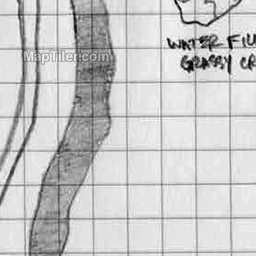 MapTiler.com
WATER FIL
GRASSY CR